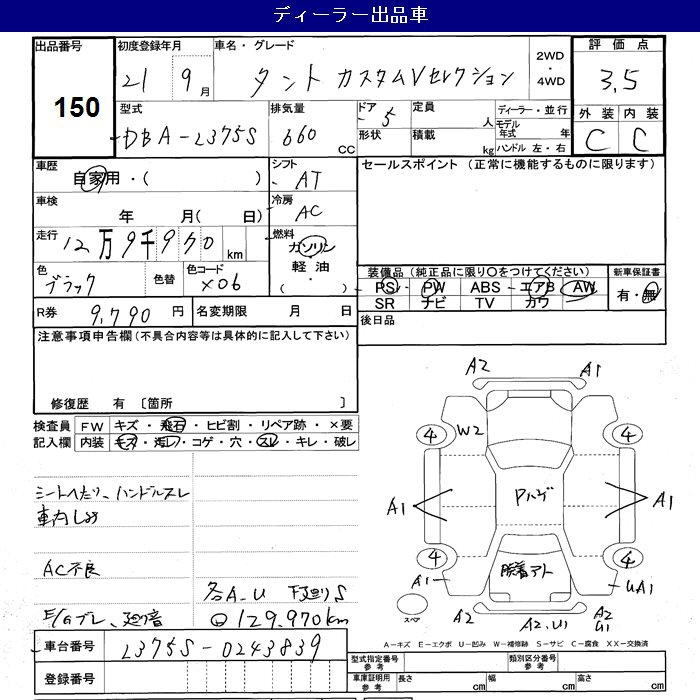 ディーラー出品車
出品番号 150
初度登録年月 21 9月
車名・グレード タント カスタムVセレクション
2WD・4WD
評価点 3.5
外装 C 内装 C
型式 DBA-L375S
排気量 660 CC
ドア 5
形状
定員 人
積載 kg
ディーラー・並行
モデル年式 年
ハンドル 左・右
車歴 自家用・( )
シフト AT
車検 年 月( 日)
冷房 AC
走行 12万9千970km
燃料 ガソリン 軽油・( )
色 ブラック
色替
色コード X06
R券 9,790円
名変期限 月 日
セールスポイント (正常に機能するものに限ります)
装備品 (純正品に限り〇をつけてください)
PS PW ABS・エアB AW
SR ナビ TV カワ
新車保証書 有・無
後日品
注意事項申告欄(不具合内容等は具体的に記入して下さい)
修復歴 有 〔箇所 〕
検査員記入欄
FW キズ・飛石・ヒビ割・リペア跡・×要
内装 キズ・汚レ・コゲ・穴・スレ・キレ・破レ
シートヘたり、ハンドルスレ
AC不良
各A.U 下廻りS
E/Gブレ、廻音
129,970km
車台番号 L375S-0243839
登録番号
A2 A1
4 W2 4
A1 Pハゲ A1
4 脱着アト 4
A1 UA1
スペア A2 A2.U1 A2 U1
A-キズ E-エクボ U-凹み W-補修跡 S-サビ C-腐食 XX-交換済
型式指定番号 参考
類別区分番号 参考
車庫証明用 参考 長さ cm 幅 cm 高さ cm